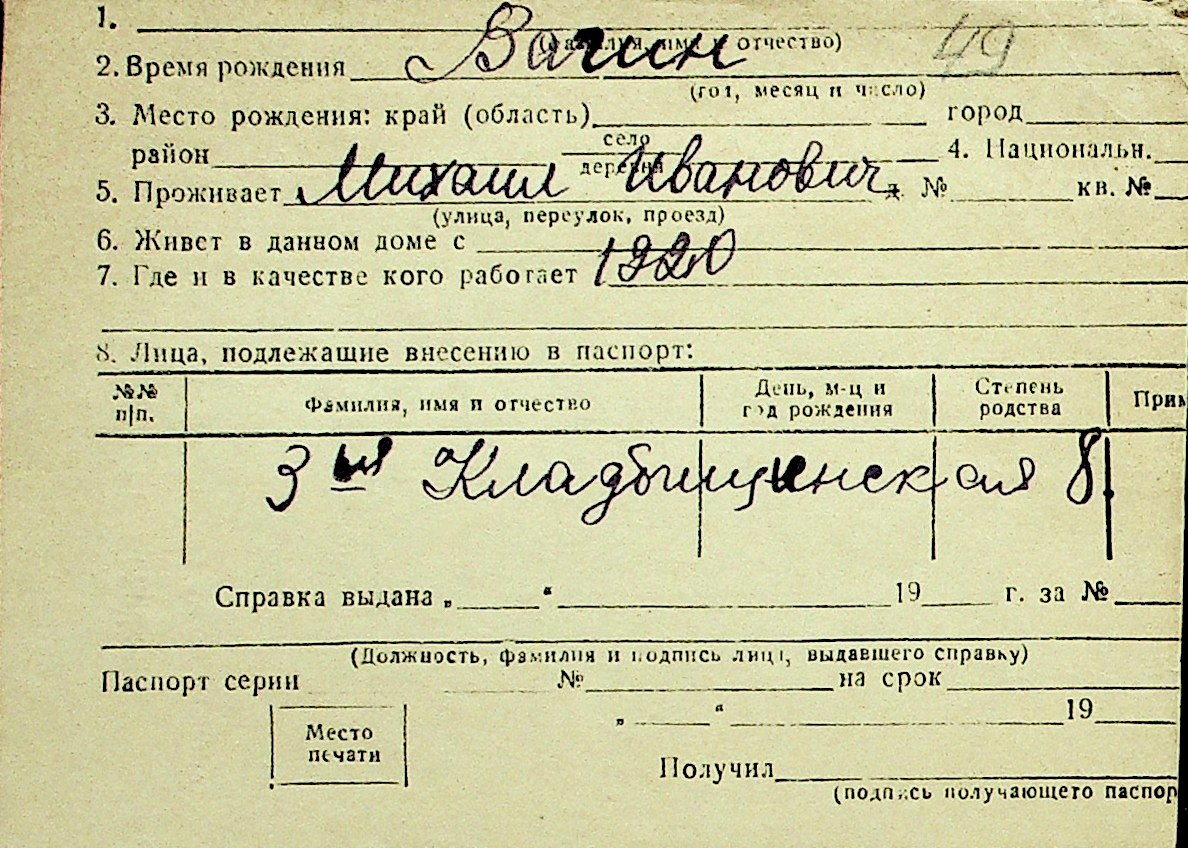 1.
Вагин 49
(фамилия, имя и отчество)
2. Время рождения
(год, месяц и число)
3. Место рождения: край (область) город
район село деревня 4. Национальн.
Михаил Иванович
5. Проживает д. № кв. №
(улица, переулок, проезд)
6. Живет в данном доме с
1920
7. Где и в качестве кого работает
8. Лица, подлежащие внесению в паспорт:
№№ п/п. Фамилия, имя и отчество День, м-ц и год рождения Степень родства Прим
3 ья Кладбищенская 8.
Справка выдана „ “ 19 г. за №
(Должность, фамилия и подпись лица, выдавшего справку)
Паспорт серии № на срок
„ “ 19
Место
печати
Получил
(подпись получающего паспор